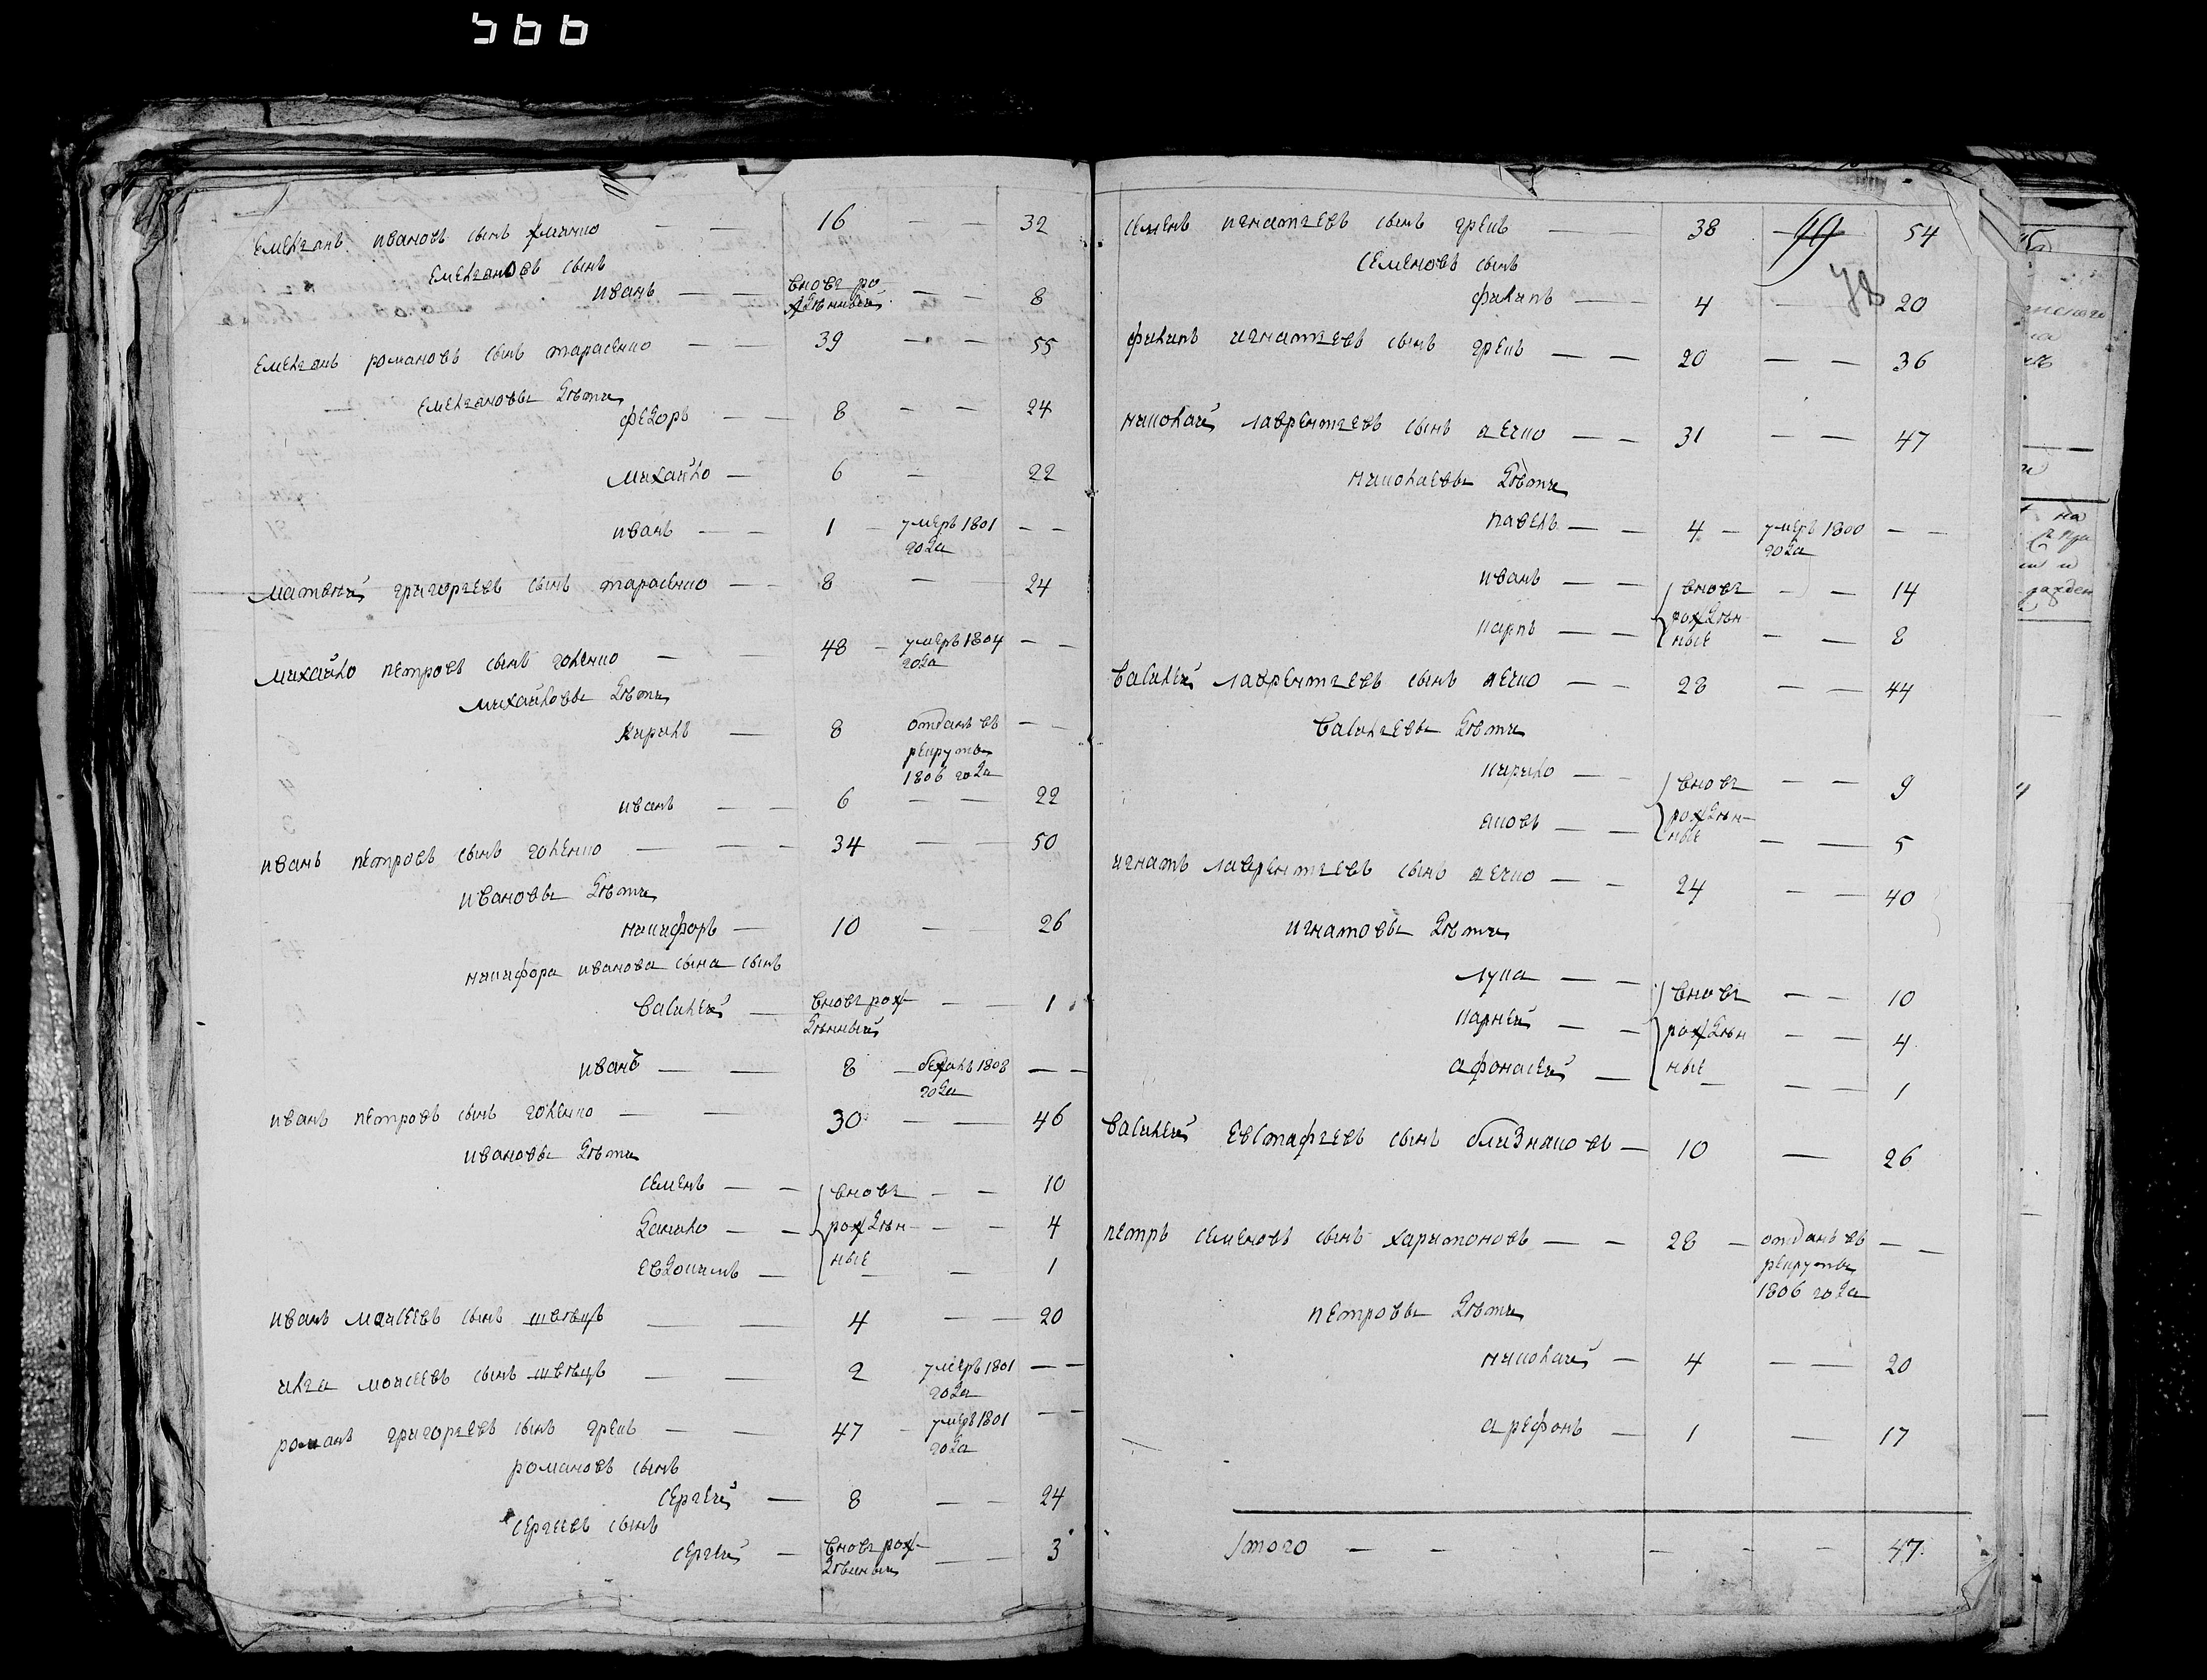 566
Емельянъ ивановъ сынъ — — 16 — — 32
Емельяновъ сынъ
иванъ — — вновь ро
жденный — — 8
Емельянъ романовъ сынъ тарасенко — — 39 — — 55
Емельяновы дѣти
федоръ — — 8 — — 24
михайло — 6 — 22
иванъ — — 1 — умеръ 1801
года — —
матвей григорьевъ сынъ тарасенко — — 8 — 24
михайло петровъ сынъ голенко — — 48 — умеръ 1804
года — —
михайловы дѣти
кирилъ — 8 отданъ въ
рекруты
1806 года — —
иванъ — — 6 — — 22
иванъ петровъ сынъ голенко — — — 34 — — 50
ивановы дѣти
никифоръ — 10 — — 26
никифора иванова сына сынъ
василей — вновь рож-
дѣнный — — 1
иванъ — — 8 — бежалъ 1808
года — —
иванъ петровъ сынъ голенко — — 30 — — 46
ивановы дѣти
семенъ — — вновь — — 10
данило — — рождѣн — — 4
евдокимъ — ные — — 1
иванъ моисеевъ сынъ швѣцъ — — 4 — — 20
илья моисеевъ сынъ швѣцъ — — 2 умеръ 1801
года — —
романъ григорьевъ сынъ грекъ — — 47 — умеръ 1801
года — —
романовъ сынъ
сергей — 8 — — 24
сергеевъ сынъ
сергей — вновь рож-
дѣнный — — 3
семенъ игнатьевъ сынъ грекъ — — 38 — 99 54
78
семеновъ сынъ
филипъ — — 4 — 20
филипъ игнатьевъ сынъ грекъ — — 20 — — 36
николай лаврентьевъ сынъ лечко — — 31 — — 47
николаевы дѣти
павелъ — — 4 — умеръ 1800
года — —
иванъ — — вновь — — 14
карпъ — — рождѣн
ные — — 8
василей лаврентьевъ сынъ лечко — — 28 — — 44
васильевы дѣти
кирило — — вновь — — 9
яковъ — — рождѣн-
ные — — 5
игнатъ лаврентьевъ сынъ лечко — — 24 — — 40
игнатовы дѣти
лука — — вновь — — 10
карней — — рождѣн — — 4
афонасей — ные — — — 1
василей евстафьевъ сынъ близнаковъ — 10 — 26
петръ семеновъ сынъ харитоновъ — — 28 — отданъ въ
рекруты
1806 года — —
петровы дѣти
николай — 4 — — 20
арефонъ — 1 — 17
итого — — — — — — 47